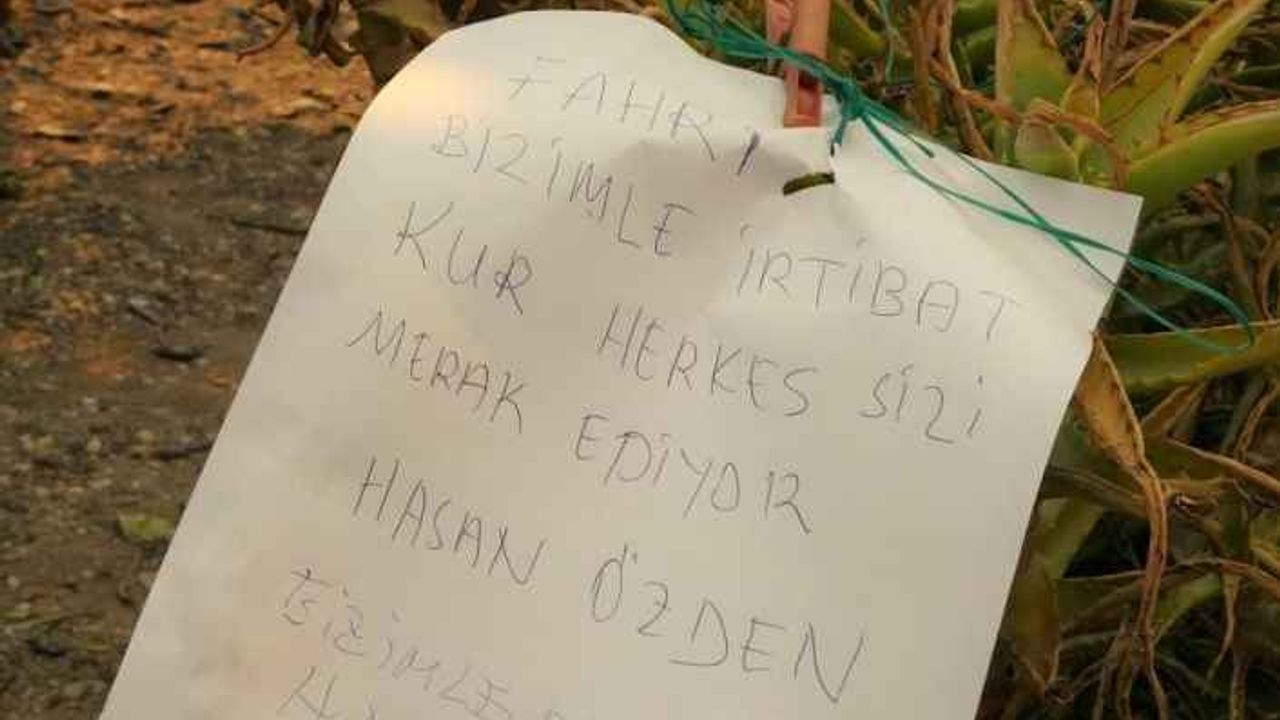 FAHRİ
BİZİMLE İRTİBAT
KUR HERKES SİZİ
MERAK EDİYOR
HASAN ÖZDEN
BİZİMLE